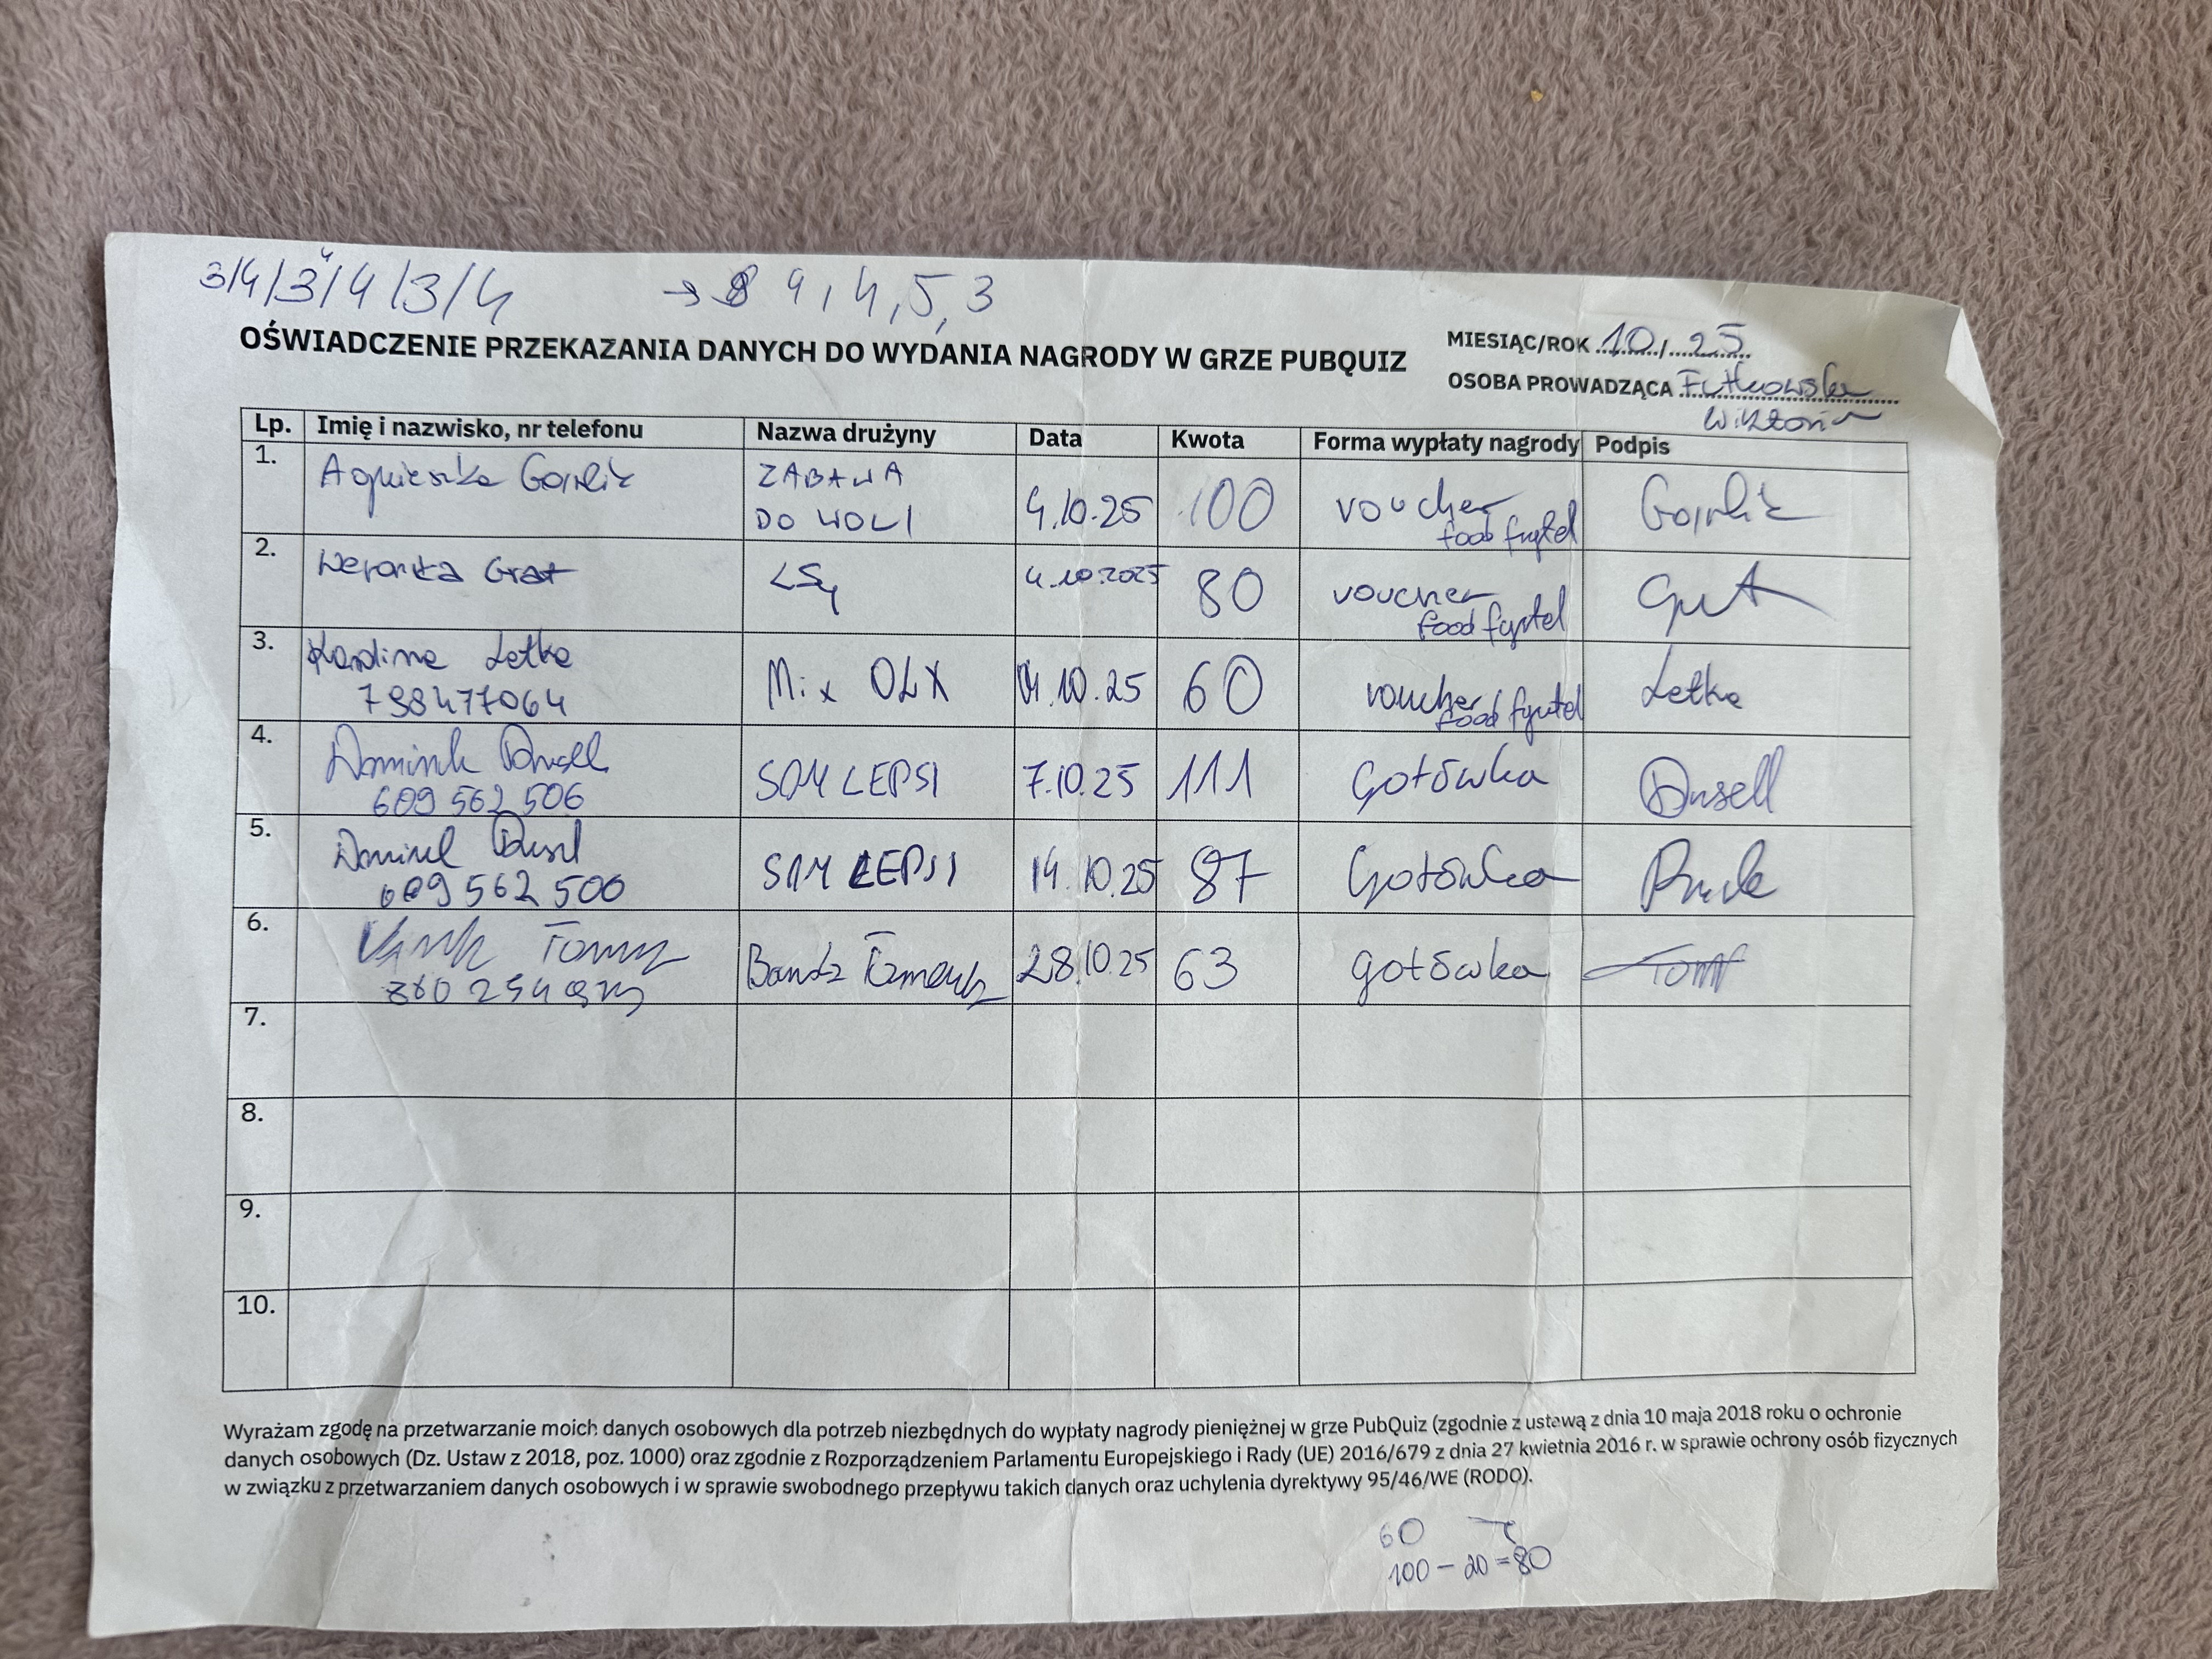 3/4/3/4/3/4 → 4, 4, 5, 3
OŚWIADCZENIE PRZEKAZANIA DANYCH DO WYDANIA NAGRODY W GRZE PUBQUIZ
MIESIĄC/ROK 10/25
OSOBA PROWADZĄCA
Wiktoria
Lp. Imię i nazwisko, nr telefonu Nazwa drużyny Data Kwota Forma wypłaty nagrody Podpis
1. Agnieszka ZABAWA
DO WOLI 4.10.25 100 voucher
food
2. Weronika 4.10.2025 80 voucher
food
3. Karolina Letka Mix OLX 04.10.25 60 voucher Letka
798477064 food
4. Dominik SAM LEPSI 7.10.25 111 Gotówka
609 562 506
5. SAM LEPSI 14.10.25 87 Gotówka
609 562 500
6. 28.10.25 63 gotówka
7.
8.
9.
10.
Wyrażam zgodę na przetwarzanie moich danych osobowych dla potrzeb niezbędnych do wypłaty nagrody pieniężnej w grze PubQuiz (zgodnie z ustawą z dnia 10 maja 2018 roku o ochronie
danych osobowych (Dz. Ustaw z 2018, poz. 1000) oraz zgodnie z Rozporządzeniem Parlamentu Europejskiego i Rady (UE) 2016/679 z dnia 27 kwietnia 2016 r. w sprawie ochrony osób fizycznych
w związku z przetwarzaniem danych osobowych i w sprawie swobodnego przepływu takich danych oraz uchylenia dyrektywy 95/46/WE (RODO).
60
100 - 20 = 80